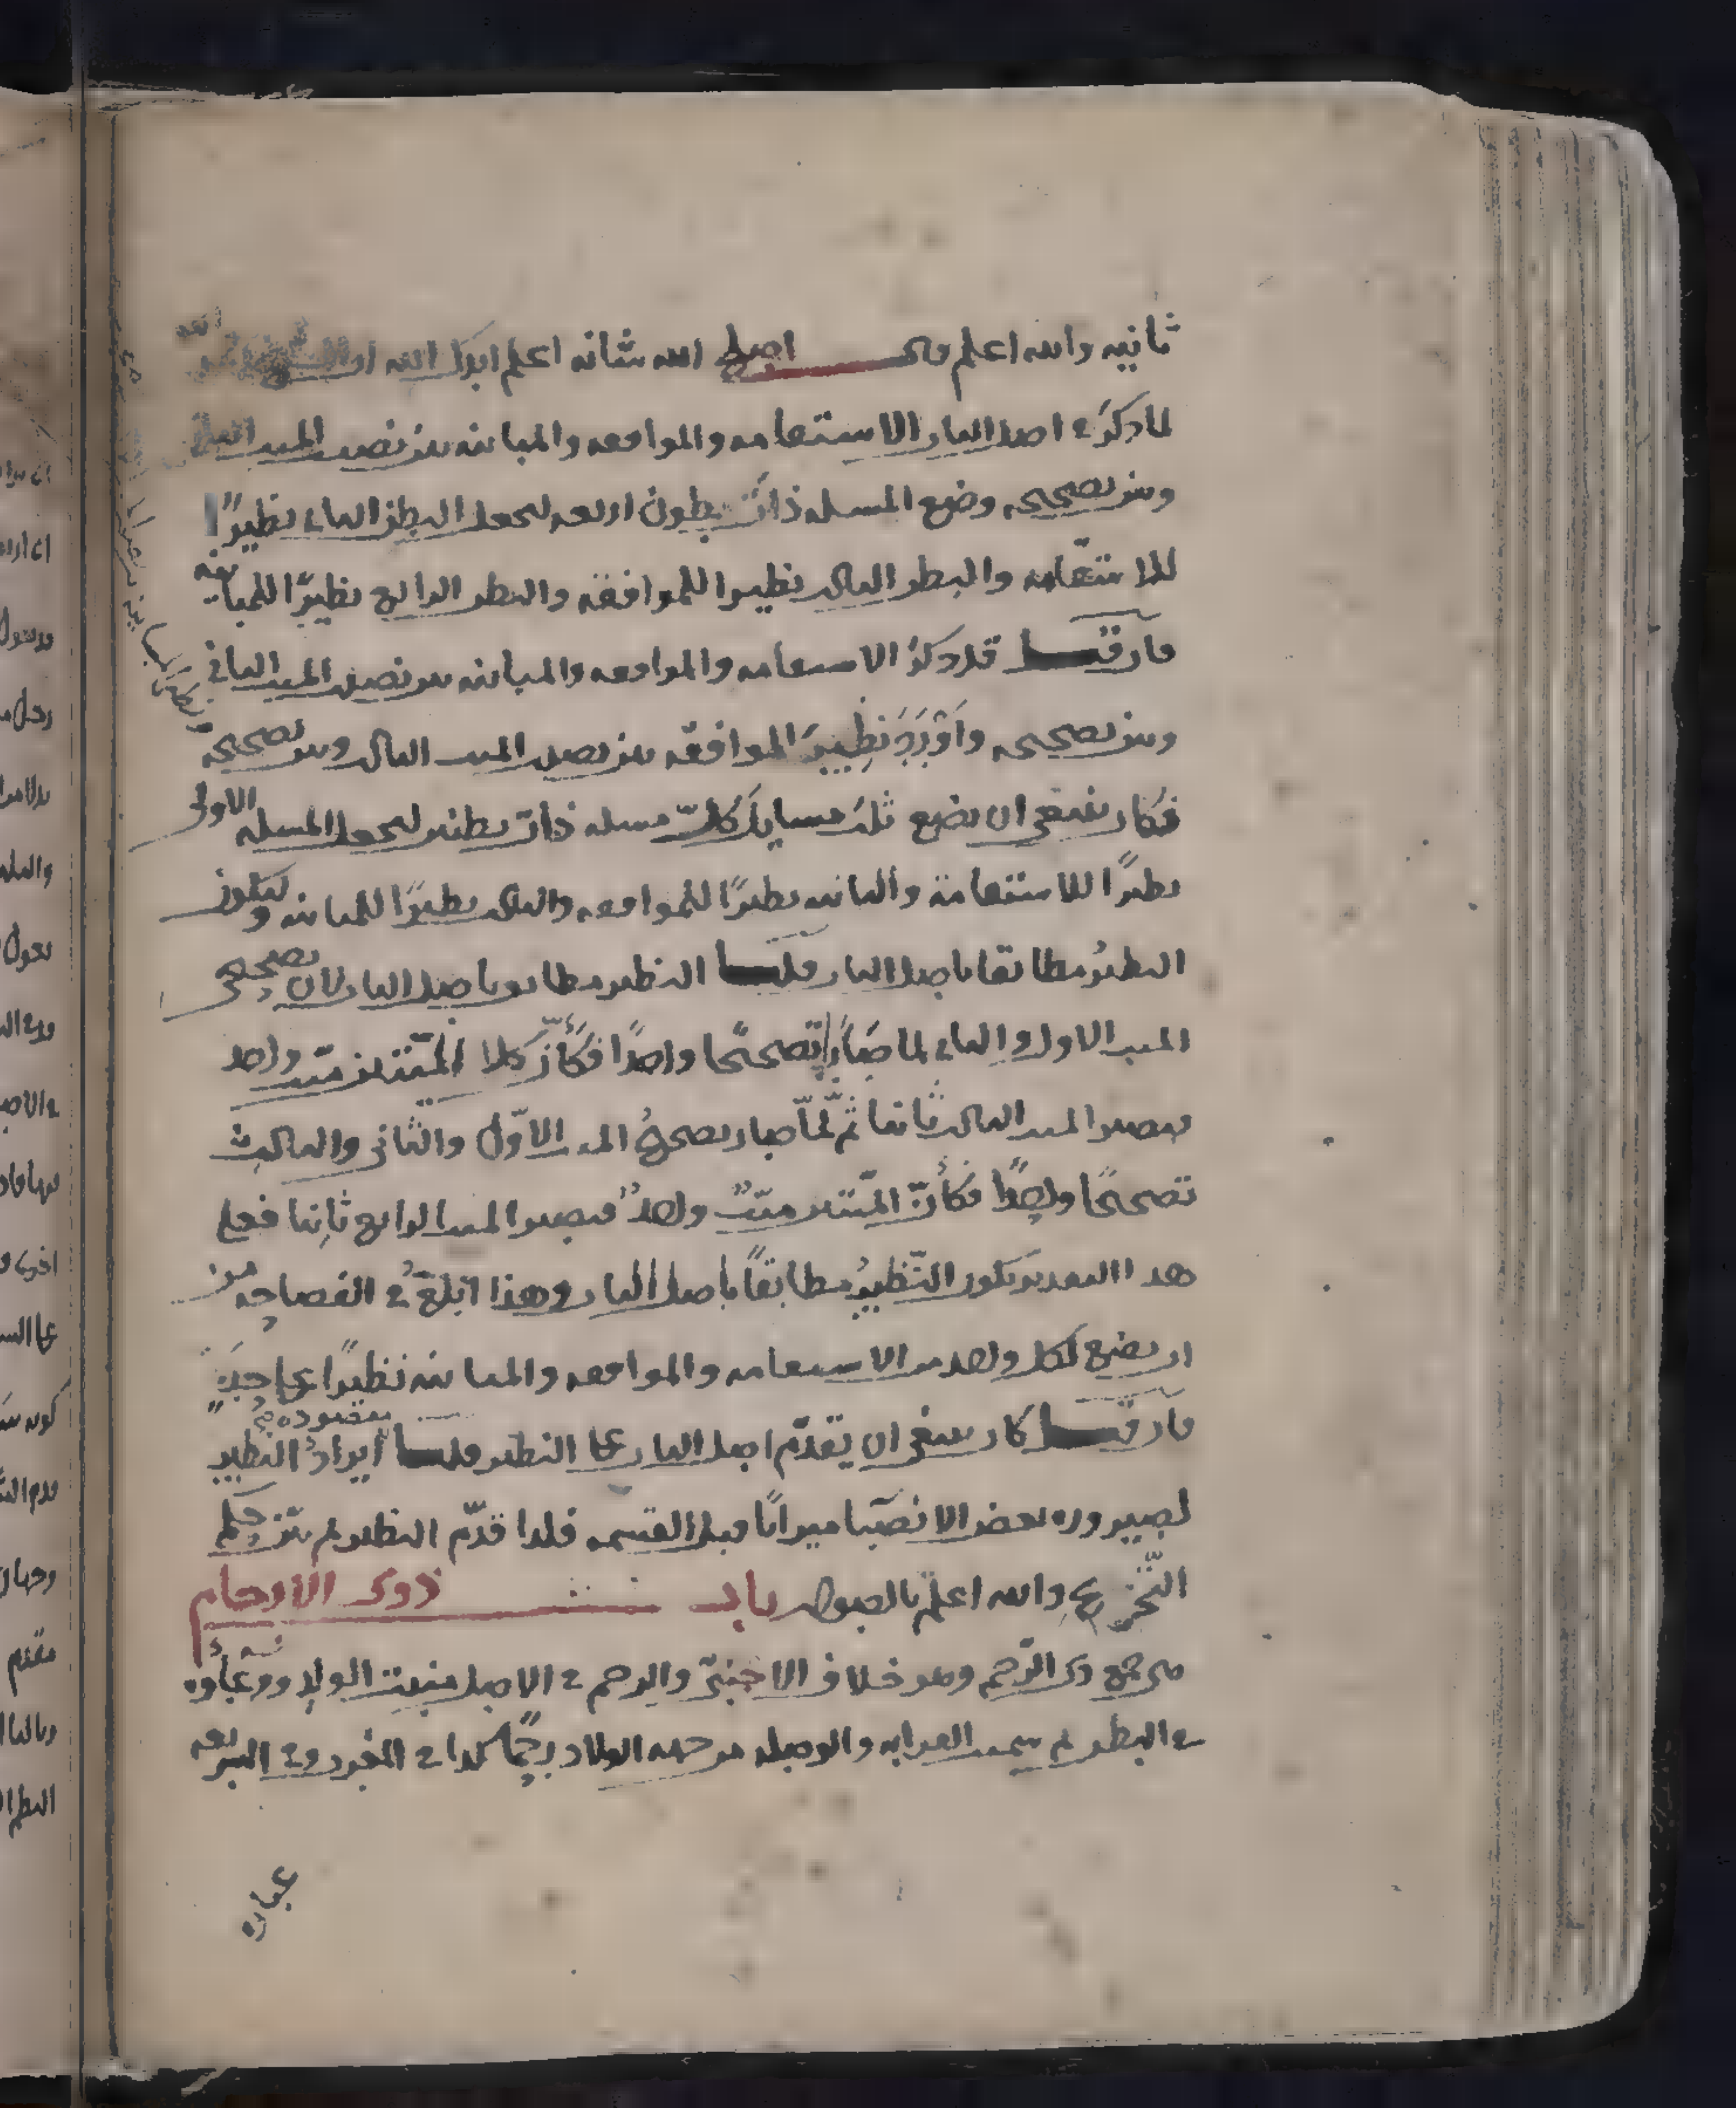 ثانيه والله اعلم قال اصلح الله شانه اعلم ايدك الله
لما ذكر في اصل الباب الاستقامه والموافقه والمباينه بين نصيب الميت الثاني
وبين تصحيحه وضع المسله ذات بطون اربعه ليجعل البطن الثاني نظيرًا
للاستقامه والبطن الثالث نظيرا للموافقه والبطن الرابع نظيرًا للمباينه
فان قيل قد ذكر الاستقامه والموافقه والمباينه بين نصيب الميت الثاني
وبين تصحيحه وَاَوْرَدَ نظِيرَ الموافقه بين نصيب الميت الثالث وبين تصحيحه
فكان ينبغي ان يضع ثلث مسايل كلّ مسله ذات بطنين ليجعل المسله الاولى
نظيرًا للاستقامة والثانيه نظيرًا للموافقه والثالثه نظيرًا للمباينه وليكون
النظيرُ مطابقا باصل الباب قلنا النظير مطابق باصل الباب لان تصحيح
الميت الاول والثاني لما صَارَ تصحيحًا واحدًا فكاَنَّ كلا الميّتين ميّت واحد
فيصير الميت الثالث ثانيا ثم لمّا صار تصحيحُ الميت الاوّل والثاني والثالث
تصحيحًا واحدًا فكأنّ الميّتين ميّتٌ واحدٌ فيصير الميت الرابع ثانِيا فعلى
هذا التقدير يكون النّظيرُ مطابقاً باصل الباب وهذا ابلغُ في الفصاحه من
ان يضع لكل واحد من الاستقامه والموافقه والمباينه نظيرًا على حِدَةٍ
فان قيل كان ينبغي ان يقدّم اصل الباب على النظير قلنا ايرادُ النظير مقصوده
لصيروره بعض الانصبا ميراثًا قبل القسمه فلذا قدّم النظير ثم بيّن حكم
التّخريج والله اعلم بالصواب باب ذوي الارحام
هي جمع ذي الرَّحم وهو خلاف الاجنبيّ والرحم في الاصل منبت الولد ووِعَاؤه
في البطن ثم سميت القرابه والوصله من جهه الولاد رحِمًا كذا في المغرب وفي الشريعه
عباره